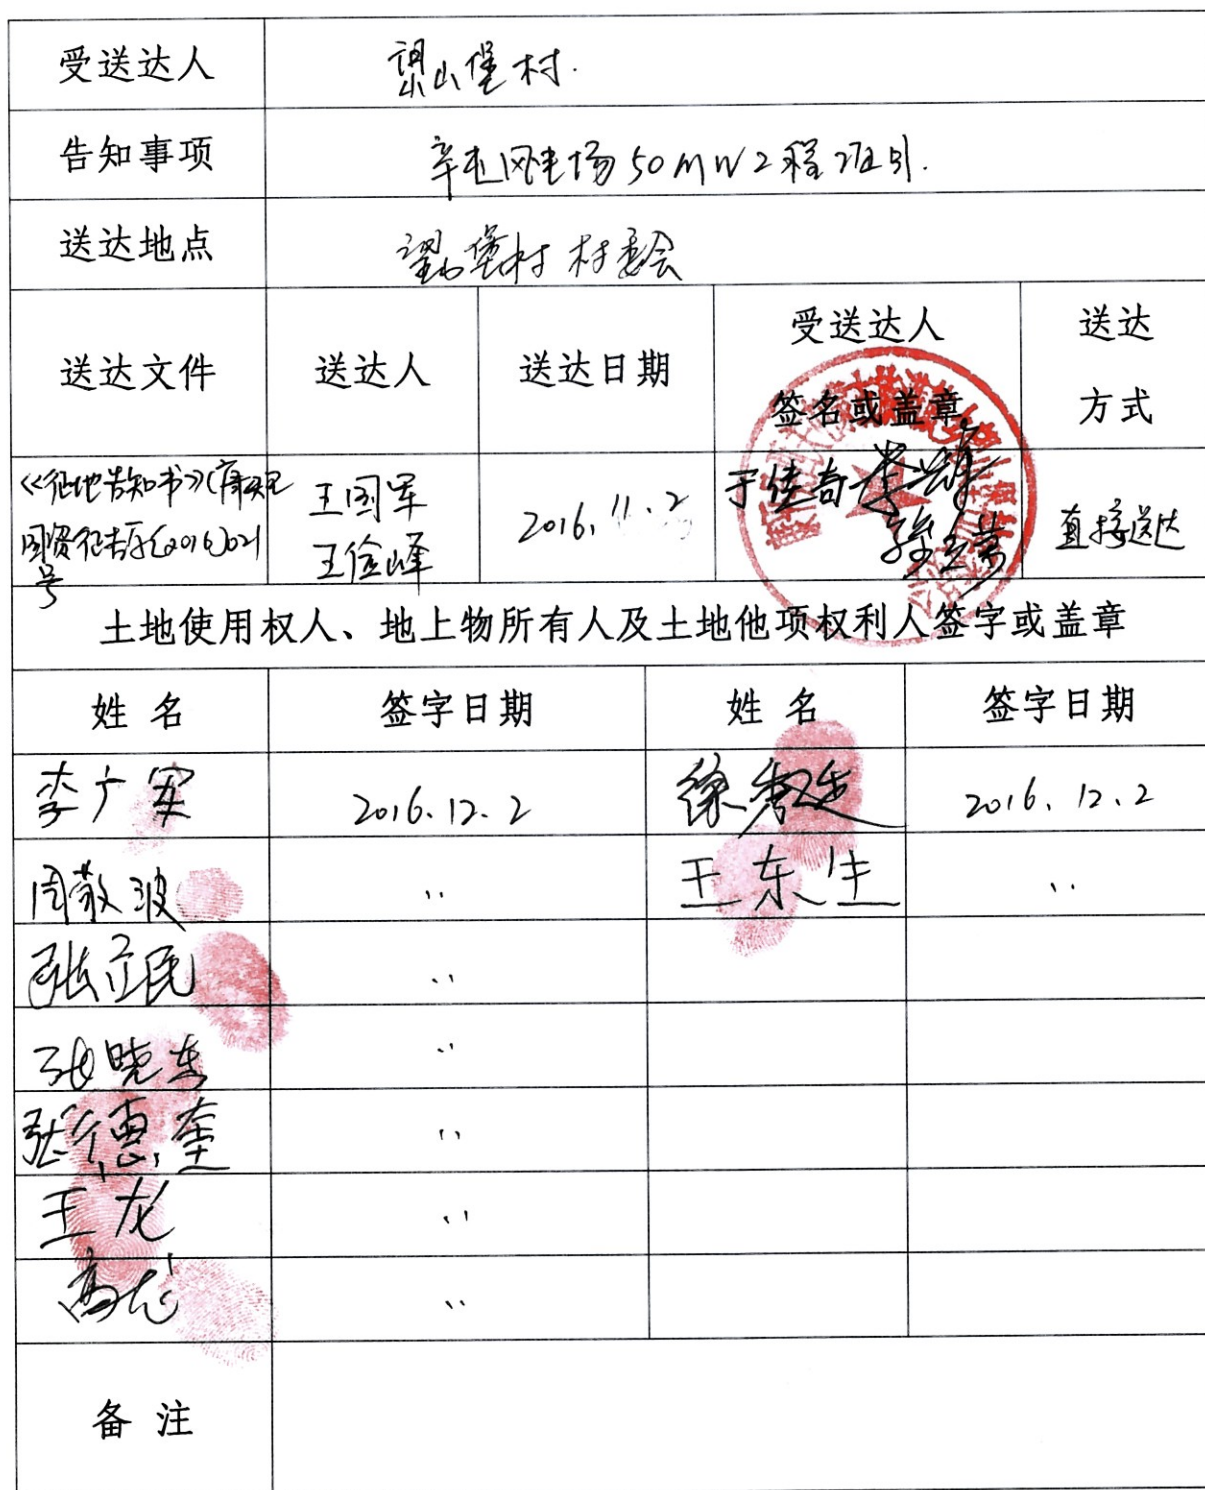 受送达人 望山堡村.
告知事项 辛屯风电场50MW工程项目.
送达地点 望山堡村 村委会
受送达人 送达
送达文件 送达人 送达日期
签名或盖章 方式
《征地告知书》(康
国资征告字(2016)021
号
王国军
王俭峰
2016.11.2
于佳奇
直接送达
土地使用权人、地上物所有人及土地他项权利人签字或盖章
姓名 签字日期 姓名 签字日期
李广军 2016.12.2 徐秀廷 2016.12.2
周敬波 〃 王东生 〃
张立民 〃
张晓东 〃
张德奎 〃
王龙 〃
高龙 〃
备注